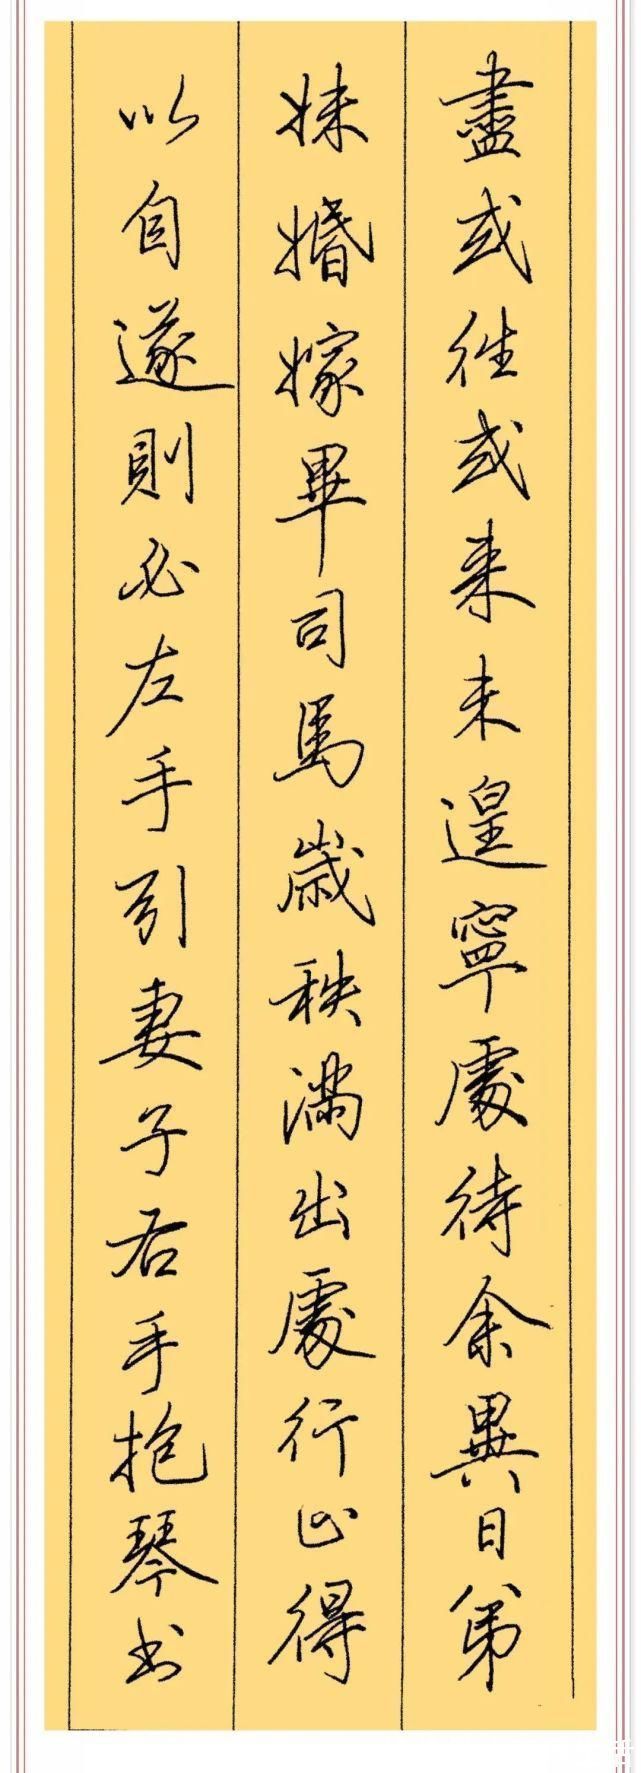 盡或往或来未遑寧處待余異日弟
妹婚嫁畢司馬歲秩满出處行止得
以自遂則必左手引妻子右手抱琴书